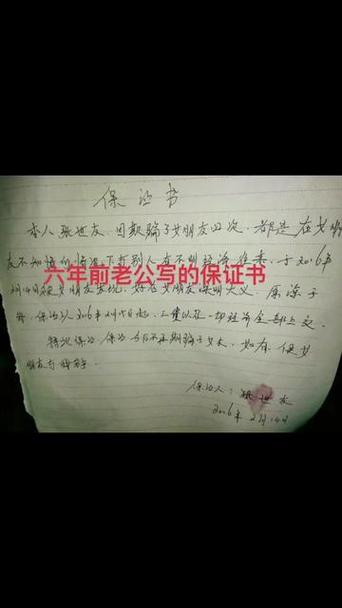 保证书
本人张世友，因欺骗了女朋友四次，都是在女朋
友不知情的情况下与别人有不明经济往来，于2016年
六年前老公写的保证书
2月14日被女朋友发现，好在女朋友深明大义，原谅于
我，保证从2016年2月14日起，工资以及一切经济全部上交
特此保证，保证今后不再欺骗于女友，如有，任女
保证人：张世友
2016年2月14日